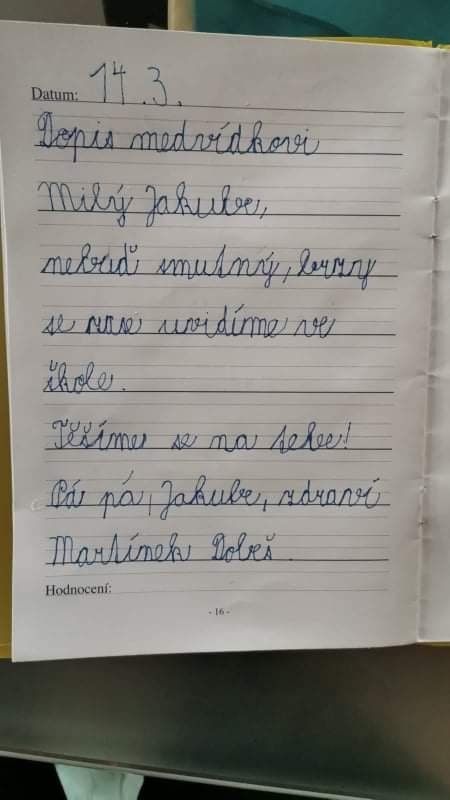 Datum: 14.3.
Dopis medvídkovi
Milý Jakube,
nebuď smutný, brzy
se zase uvidíme ve
škole.
Těšíme se na tebe!
Pá pá, Jakube, zdraví
Martínek Dobeš
Hodnocení:
- 16 -